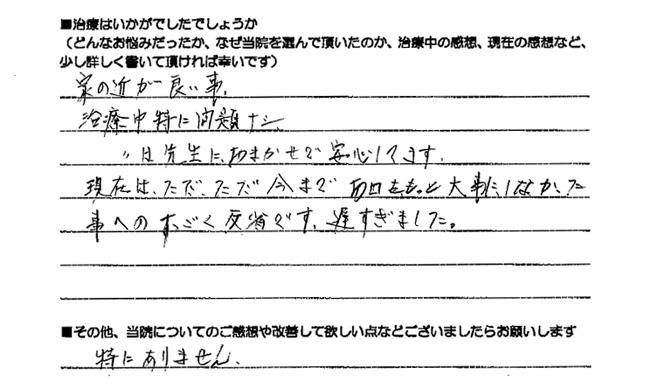 ■治療はいかがでしたでしょうか
(どんなお悩みだったか、なぜ当院を選んで頂いたのか、治療中の感想、現在の感想など、
少し詳しく書いて頂ければ幸いです)
家の近が良い事。
治療中特に問題ナシ
〃は先生におまかせで安心してます。
現在は、ただ、ただ今まで もっと大事にしなかった
事へのすごく反省です、遅すぎました。
■その他、当院についてのご感想や改善して欲しい点などございましたらお願いします
特にありません。